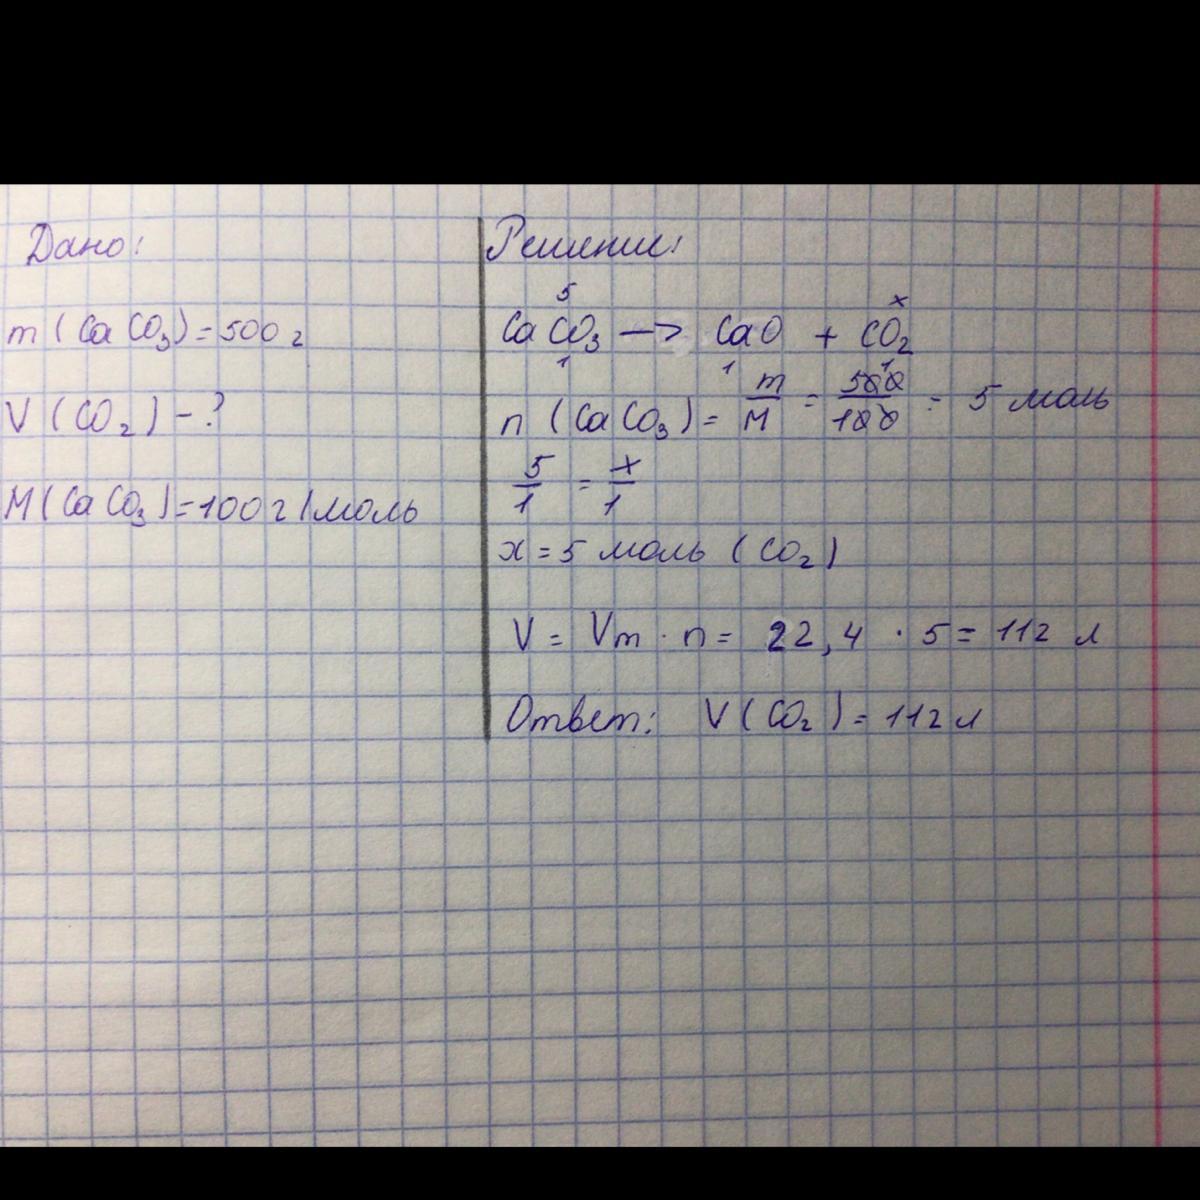 Дано:
m (CaCO₃) = 500 г
V (CO₂) - ?
M (CaCO₃) = 100 г/моль
Решение:
5 x
CaCO₃ —> CaO + CO₂
1 1 1
n (CaCO₃) = m/M = 500/100 = 5 моль
5/1 = x/1
x = 5 моль (CO₂)
V = Vm · n = 22,4 · 5 = 112 л
Ответ: V (CO₂) = 112 л